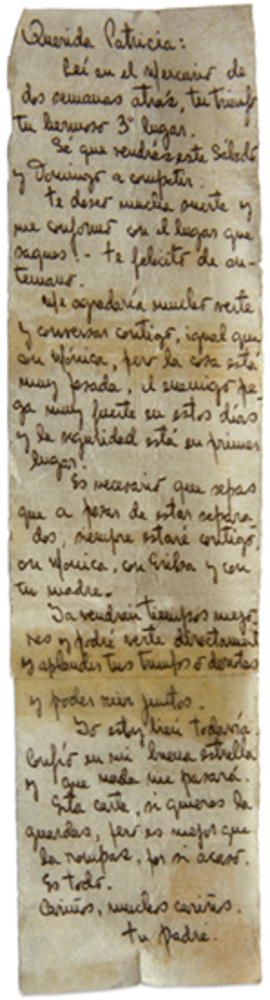 Querida Patricia:
Leí en el Mercurio de
dos semanas atrás, tu triunfo
tu hermoso 3er lugar.
Se que vendrás este Sábado
y Domingo a competir.
Te deseo mucha suerte y
me conformo con el lugar que
saques! - te felicito de an-
temano.
Me agradaría mucho verte
y conversar contigo, igual que
con Mónica, pero la cosa está
muy pesada, el enemigo pe-
ga muy fuerte en estos días
y la seguridad está en primer
lugar.
Es necesario que sepas
que a pesar de estar separa-
dos, siempre estaré contigo,
con Mónica, con y con
tu madre.
Ya vendrán tiempos mejo-
res y podré verte directament
y aplaudir tus triunfos o derrotas
y poder reir juntos.
Yo estoy bien todavía.
Confío en mi buena estrella
y que nada me pasará.
Esta carta, si quieres la
guardas, pero es mejor que
la rompas, por si acaso.
Es todo.
Cariños, muchos cariños.
tu padre.